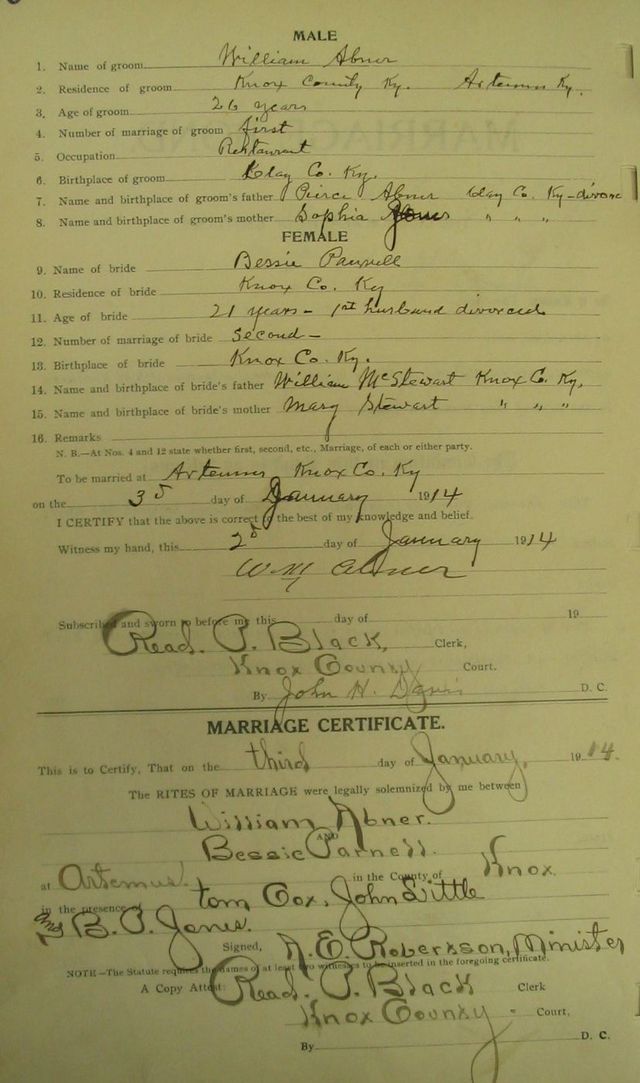 MALE
1. Name of groom William Abner
2. Residence of groom Knox County Ky. Artemus Ky.
3. Age of groom 26 years
4. Number of marriage of groom first
5. Occupation Restaurant
6. Birthplace of groom Clay Co. Ky.
7. Name and birthplace of groom's father Pierce Abner Clay Co. Ky - divorce
8. Name and birthplace of groom's mother Sophia " " "
FEMALE
9. Name of bride Bessie
10. Residence of bride Knox Co. Ky
11. Age of bride 21 years - 1st husband divorced
12. Number of marriage of bride Second -
13. Birthplace of bride Knox Co. Ky.
14. Name and birthplace of bride's father William McStewart Knox Co. Ky.
15. Name and birthplace of bride's mother Mary Stewart " " "
16. Remarks
N. B.—At Nos. 4 and 12 state whether first, second, etc., Marriage, of each or either party.
To be married at Artemus Knox Co. Ky
on the 3 day of January 1914
I CERTIFY that the above is correct to the best of my knowledge and belief.
Witness my hand, this 2 day of January 1914
Wm Abner
Subscribed and sworn to before me this day of 19
Read. P. Black, Clerk,
Knox County Court.
By John H. Davis D. C.
MARRIAGE CERTIFICATE.
This is to Certify, That on the third day of January, 1914.
The RITES OF MARRIAGE were legally solemnized by me between
William Abner.
AND
Bessie Parnell.
at Artemus. in the County of Knox.
in the presence of Tom Cox, John Little
and B. P. Jones.
Signed, A. E. Robersson, Minister
NOTE—The Statute requires the names of at least two witnesses to be inserted in the foregoing certificate.
A Copy Attest: Read. P. Black Clerk
Knox County. Court,
By D. C.